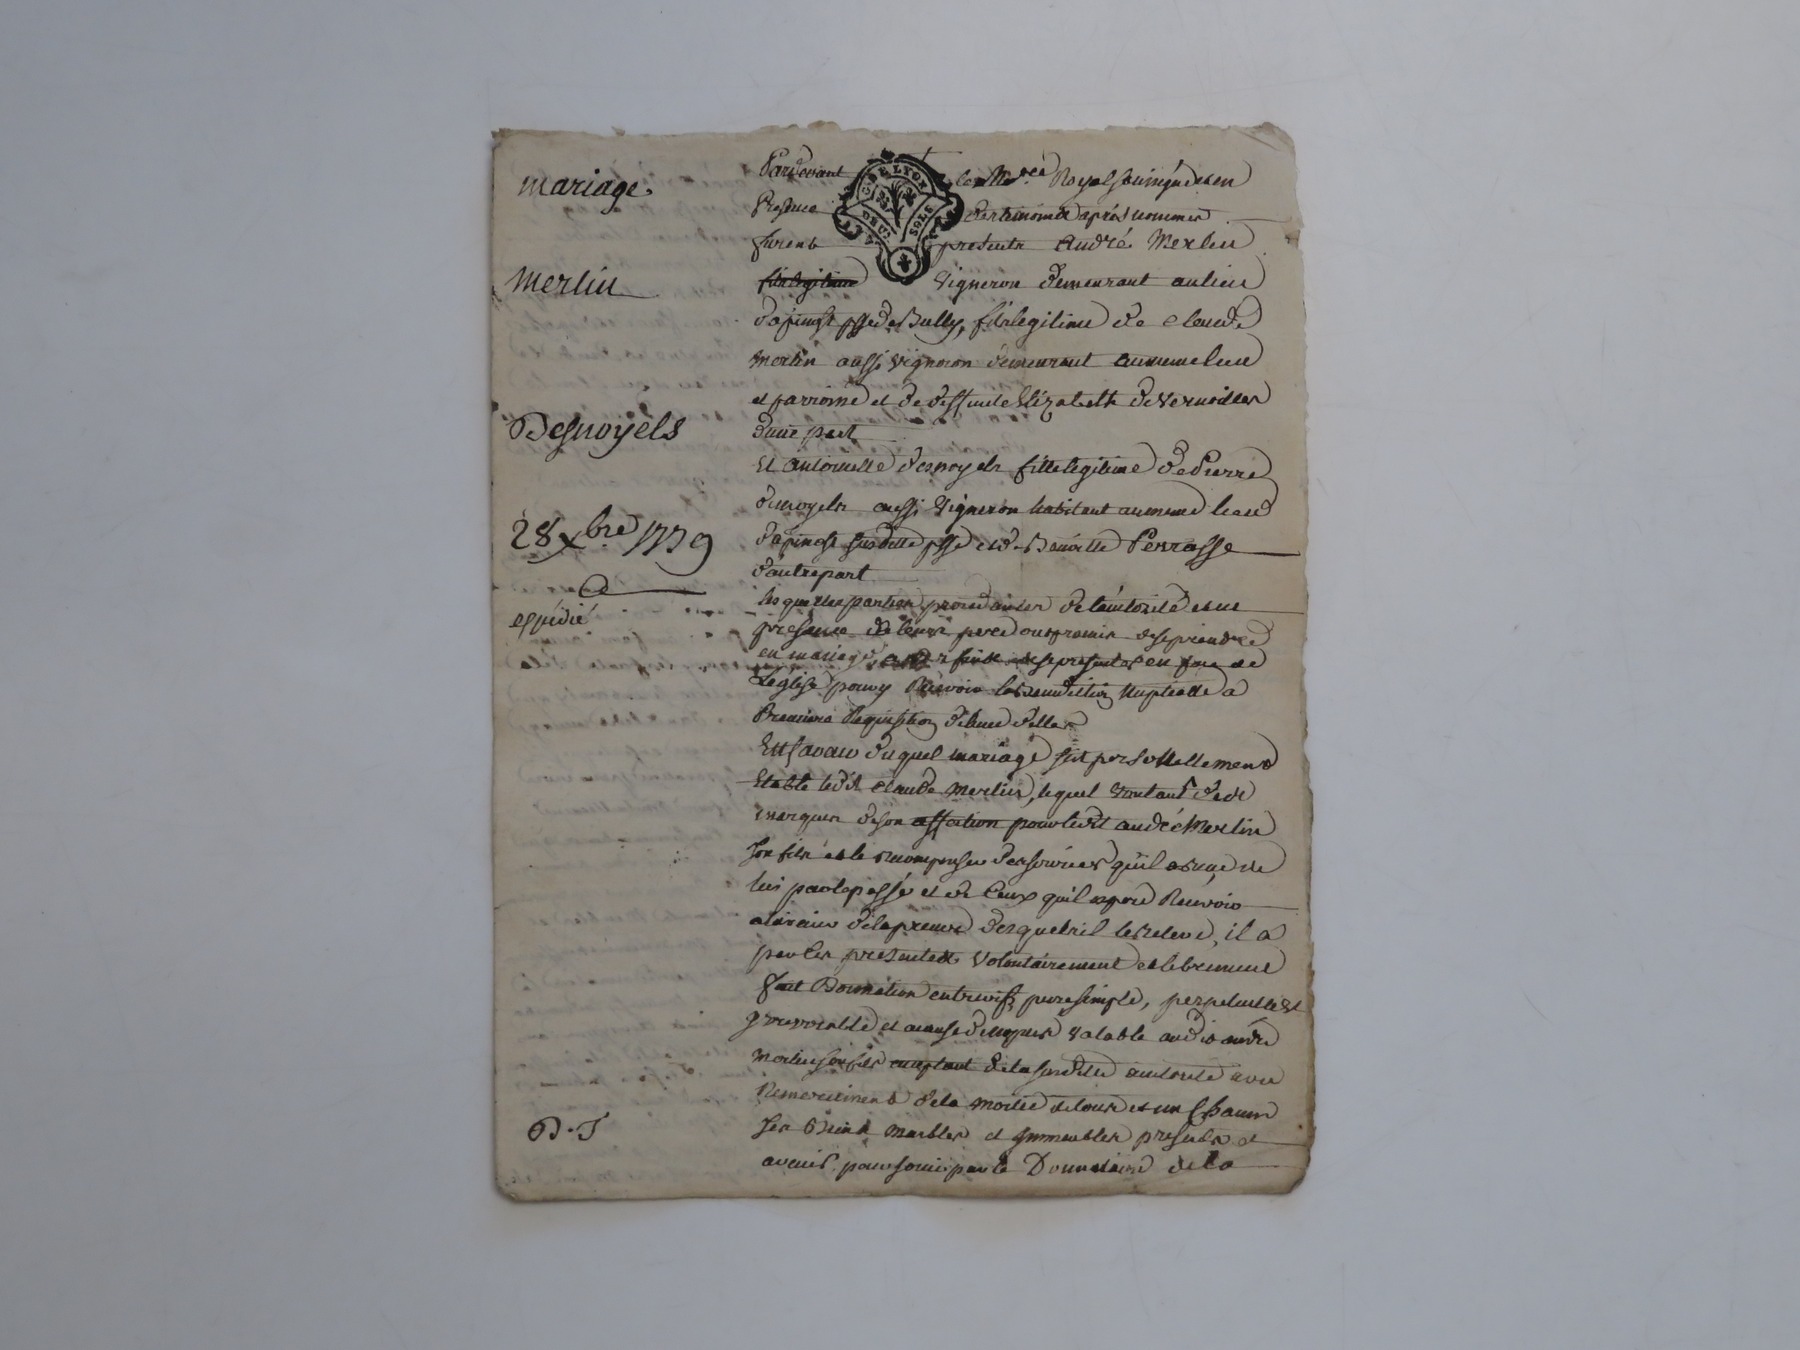 mariage.
Merlin
Desnoyels
28 xbre 1779
expédié
D. J
G DE LYON
DEUX SOLS
Pardevant le No.re Royal soussigné et en
Presence des temoins après nommés
furent presents André Merlin
fils legitime Vigneron demeurant au lieu
d'apinost psse de Bully, fils legitime de Claude
Merlin aussi vigneron demeurant au meme lieu
et parroisse et de deffunte Elizabeth de
d'une part
Et antoinette desnoyels fille legitime de Pierre
desnoyels aussi Vigneron habitant au meme lieu
d'apinost susditte psse et de Benoitte Perrasse
d'autre part
lesquelles parties procedantes de l'autorité et en
presence de leurs peres ont promis de se prendre
en mariage, et de se presenter en face de
L'eglise pour y Recevoir la Benediction Nuptialle a
Premiere Requisition de l'une d'elles
En faveur duquel mariage s'est personnellement
Etabli ledit Claude Merlin, lequel voulant de
marques de son affection pour ledit andré Merlin
son fils et le recompenser des services qu'il a de
lui par le passé et de ceux qu'il espere Recevoir
a l'avenir de la preuve desquels il le releve, il a
par les presentes volontairement et librement
fait Donnation entrevifs, pure simple, perpetuelle et
yrrevocable et a cause de nopces valable audit andré
Merlin son fils acceptant de la susditte autorité avec
Remerciment de la moitié de tous et un Chacun
ses Biens Meubles et Immeubles presents et
avenir pour jouir par le Donnataire de la